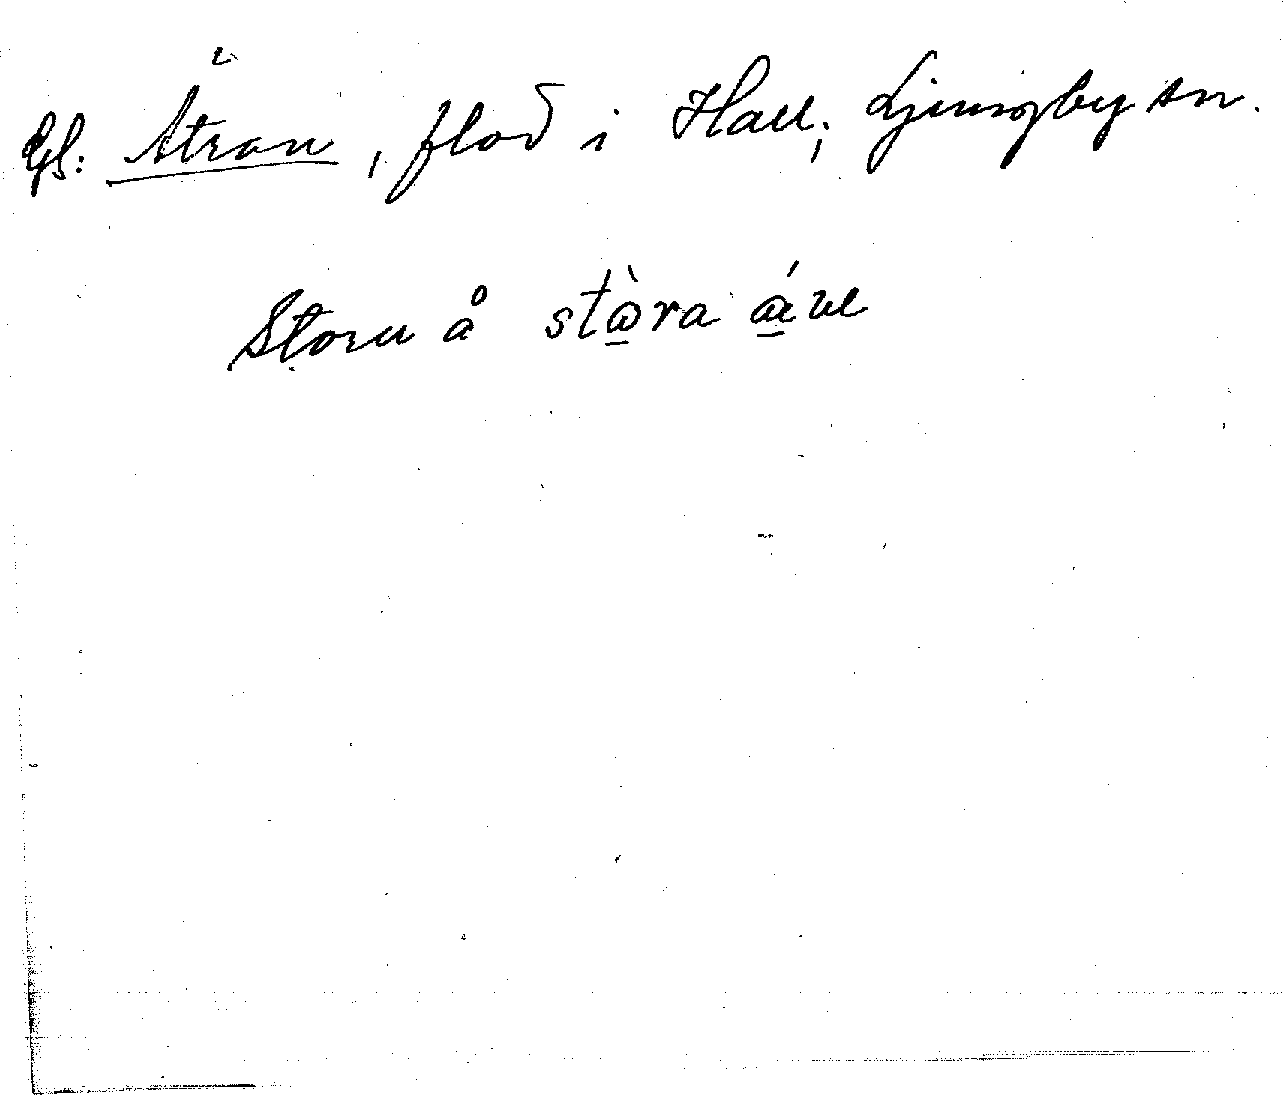 Jfr: Ätran, flod i Hall; Ljungby sn.
Stora å stɷ̀ra áve